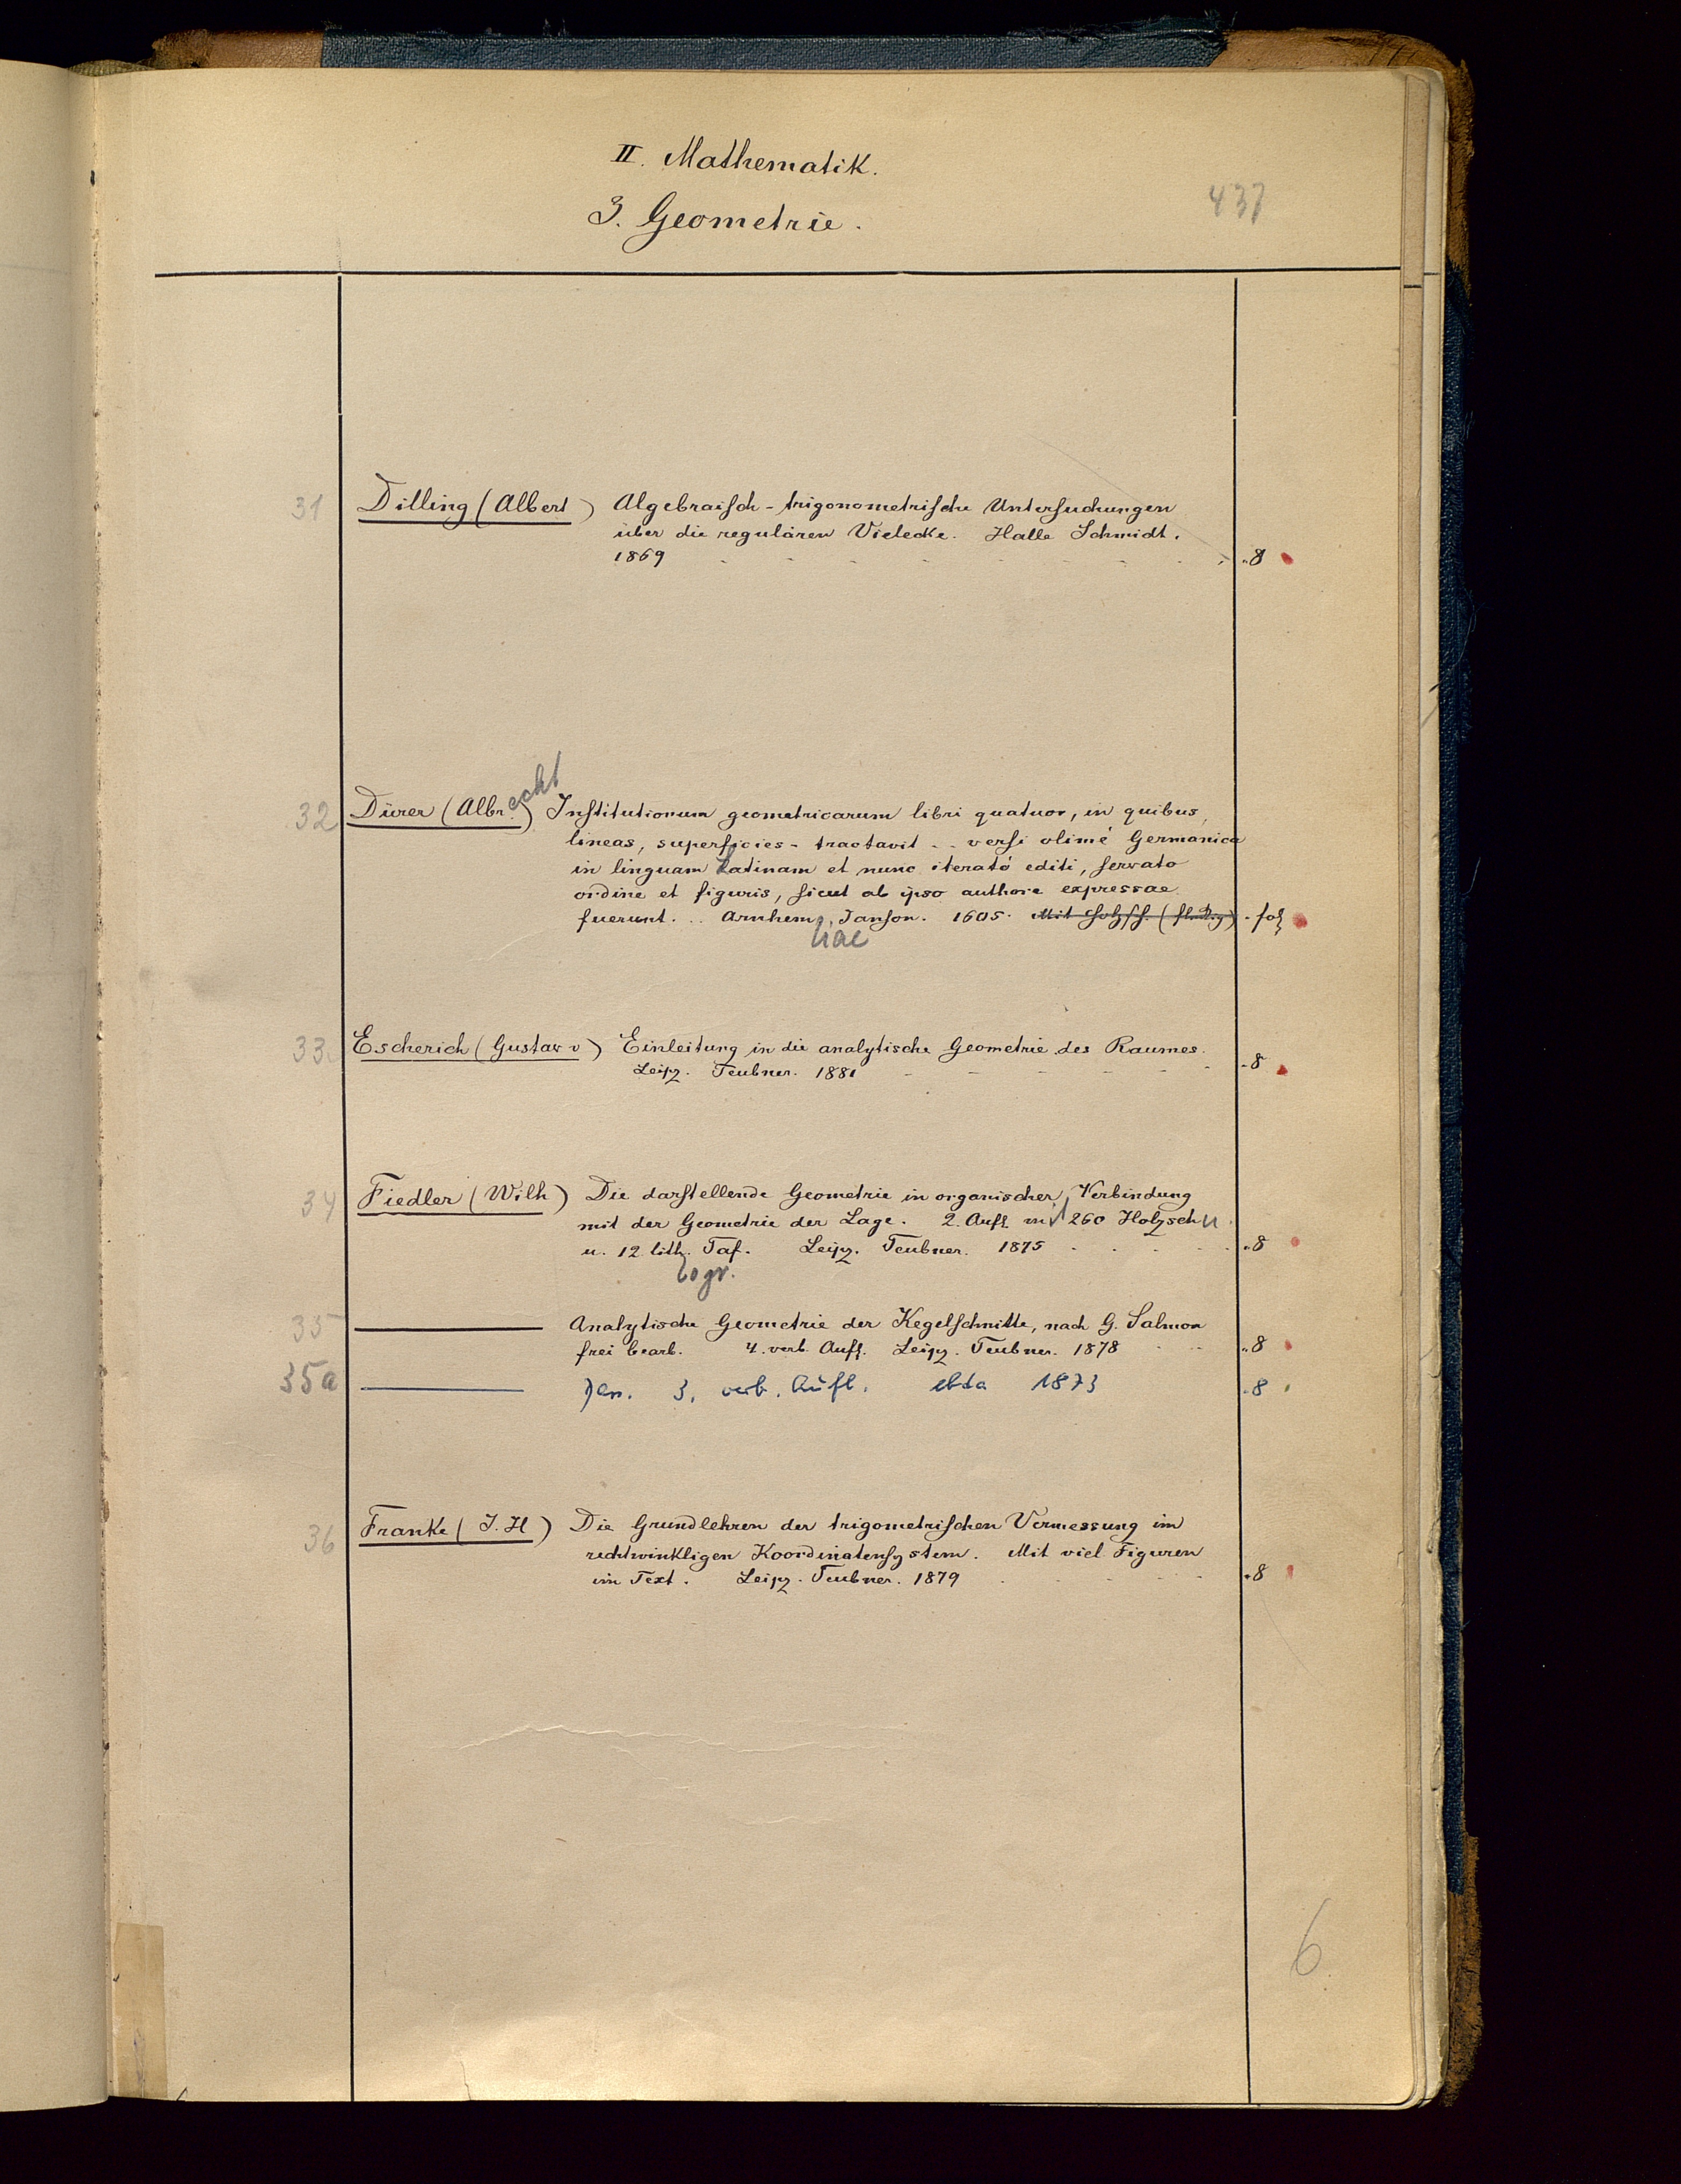 II. Mathematik.
437
3. Geometrie.
31 Dilling (Albert) Algebraisch-trigonometrische Untersuchungen
über die regulären Vielecke. Halle Schmidt.
1869 8
echt
32 Dürer (Albr.) Institutionum geometricarum libri quatuor, in quibus,
lineas, superficies - tractavit - - versi olim é Germanica
in linguam Latinam et nunc iterató editi, servato
ordine et figuris, sicut ab ipso authore expressae
fuerunt. .. Arnhem, Janson. 1605. Mit Holzsch. fol
iae
33. Escherich (Gustav v) Einleitung in die analytische Geometrie des Raumes.
Leipz. Teubner. 1881 8
34 Fiedler (Wilh) Die darstellende Geometrie in organischer Verbindung
mit der Geometrie der Lage. 2. Aufl m 260 Holzschn
u. 12 lith. Taf. Leipz. Teubner. 1875 8
ogr.
35 Analytische Geometrie der Kegelschnitte, nach G. Salmon
frei bearb. 4. verb. Aufl. Leipz. Teubner. 1878 8
35a Das. 3. verb. Aufl. ebda 1873 8
36 Franke (J. H) Die Grundlehren der trigometrischen Vermessung im
rechtwinkligen Koordinatensystem. Mit viel Figuren
im Text. Leipz. Teubner. 1879 8
6